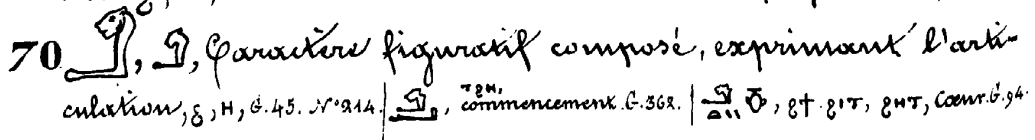 70 𓄂, 𓄂, Caractère figuratif composé, exprimant l'arti-
culation, ϩ, H, G. 45. N° 214. | 𓄂, ⲧϩⲏ, commencement. G. 362. | 𓄂, ϩϯ . ϩⲓⲧ, ϩⲏⲧ, Cœur. G. 94.